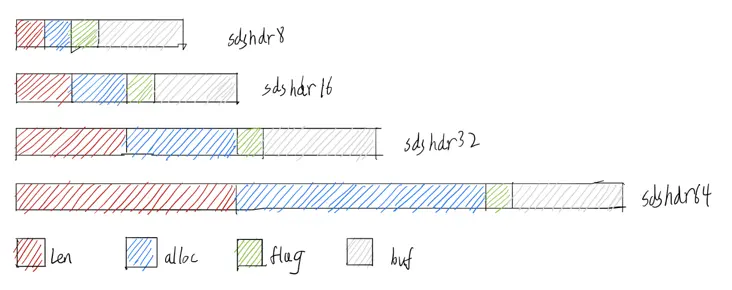 sdshdr8
sdshdr16
sdshdr32
sdshdr64
len alloc flag buf